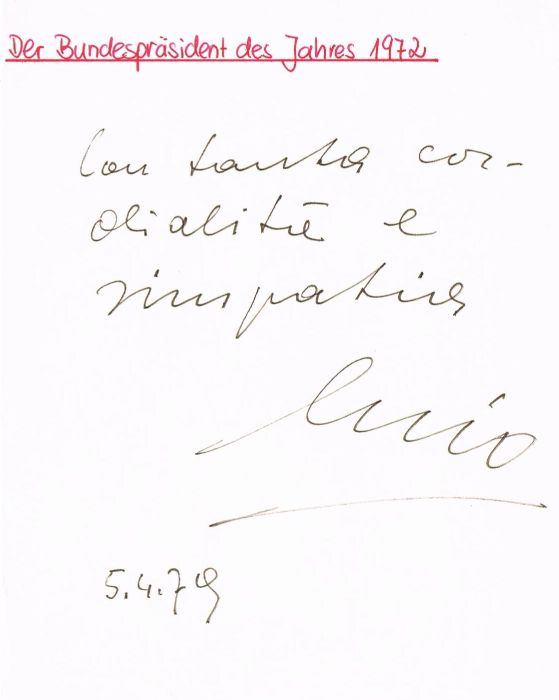 Der Bundespräsident des Jahres 1972
Con tanta cor-
dialità e
simpatia
Celio
5.4.79